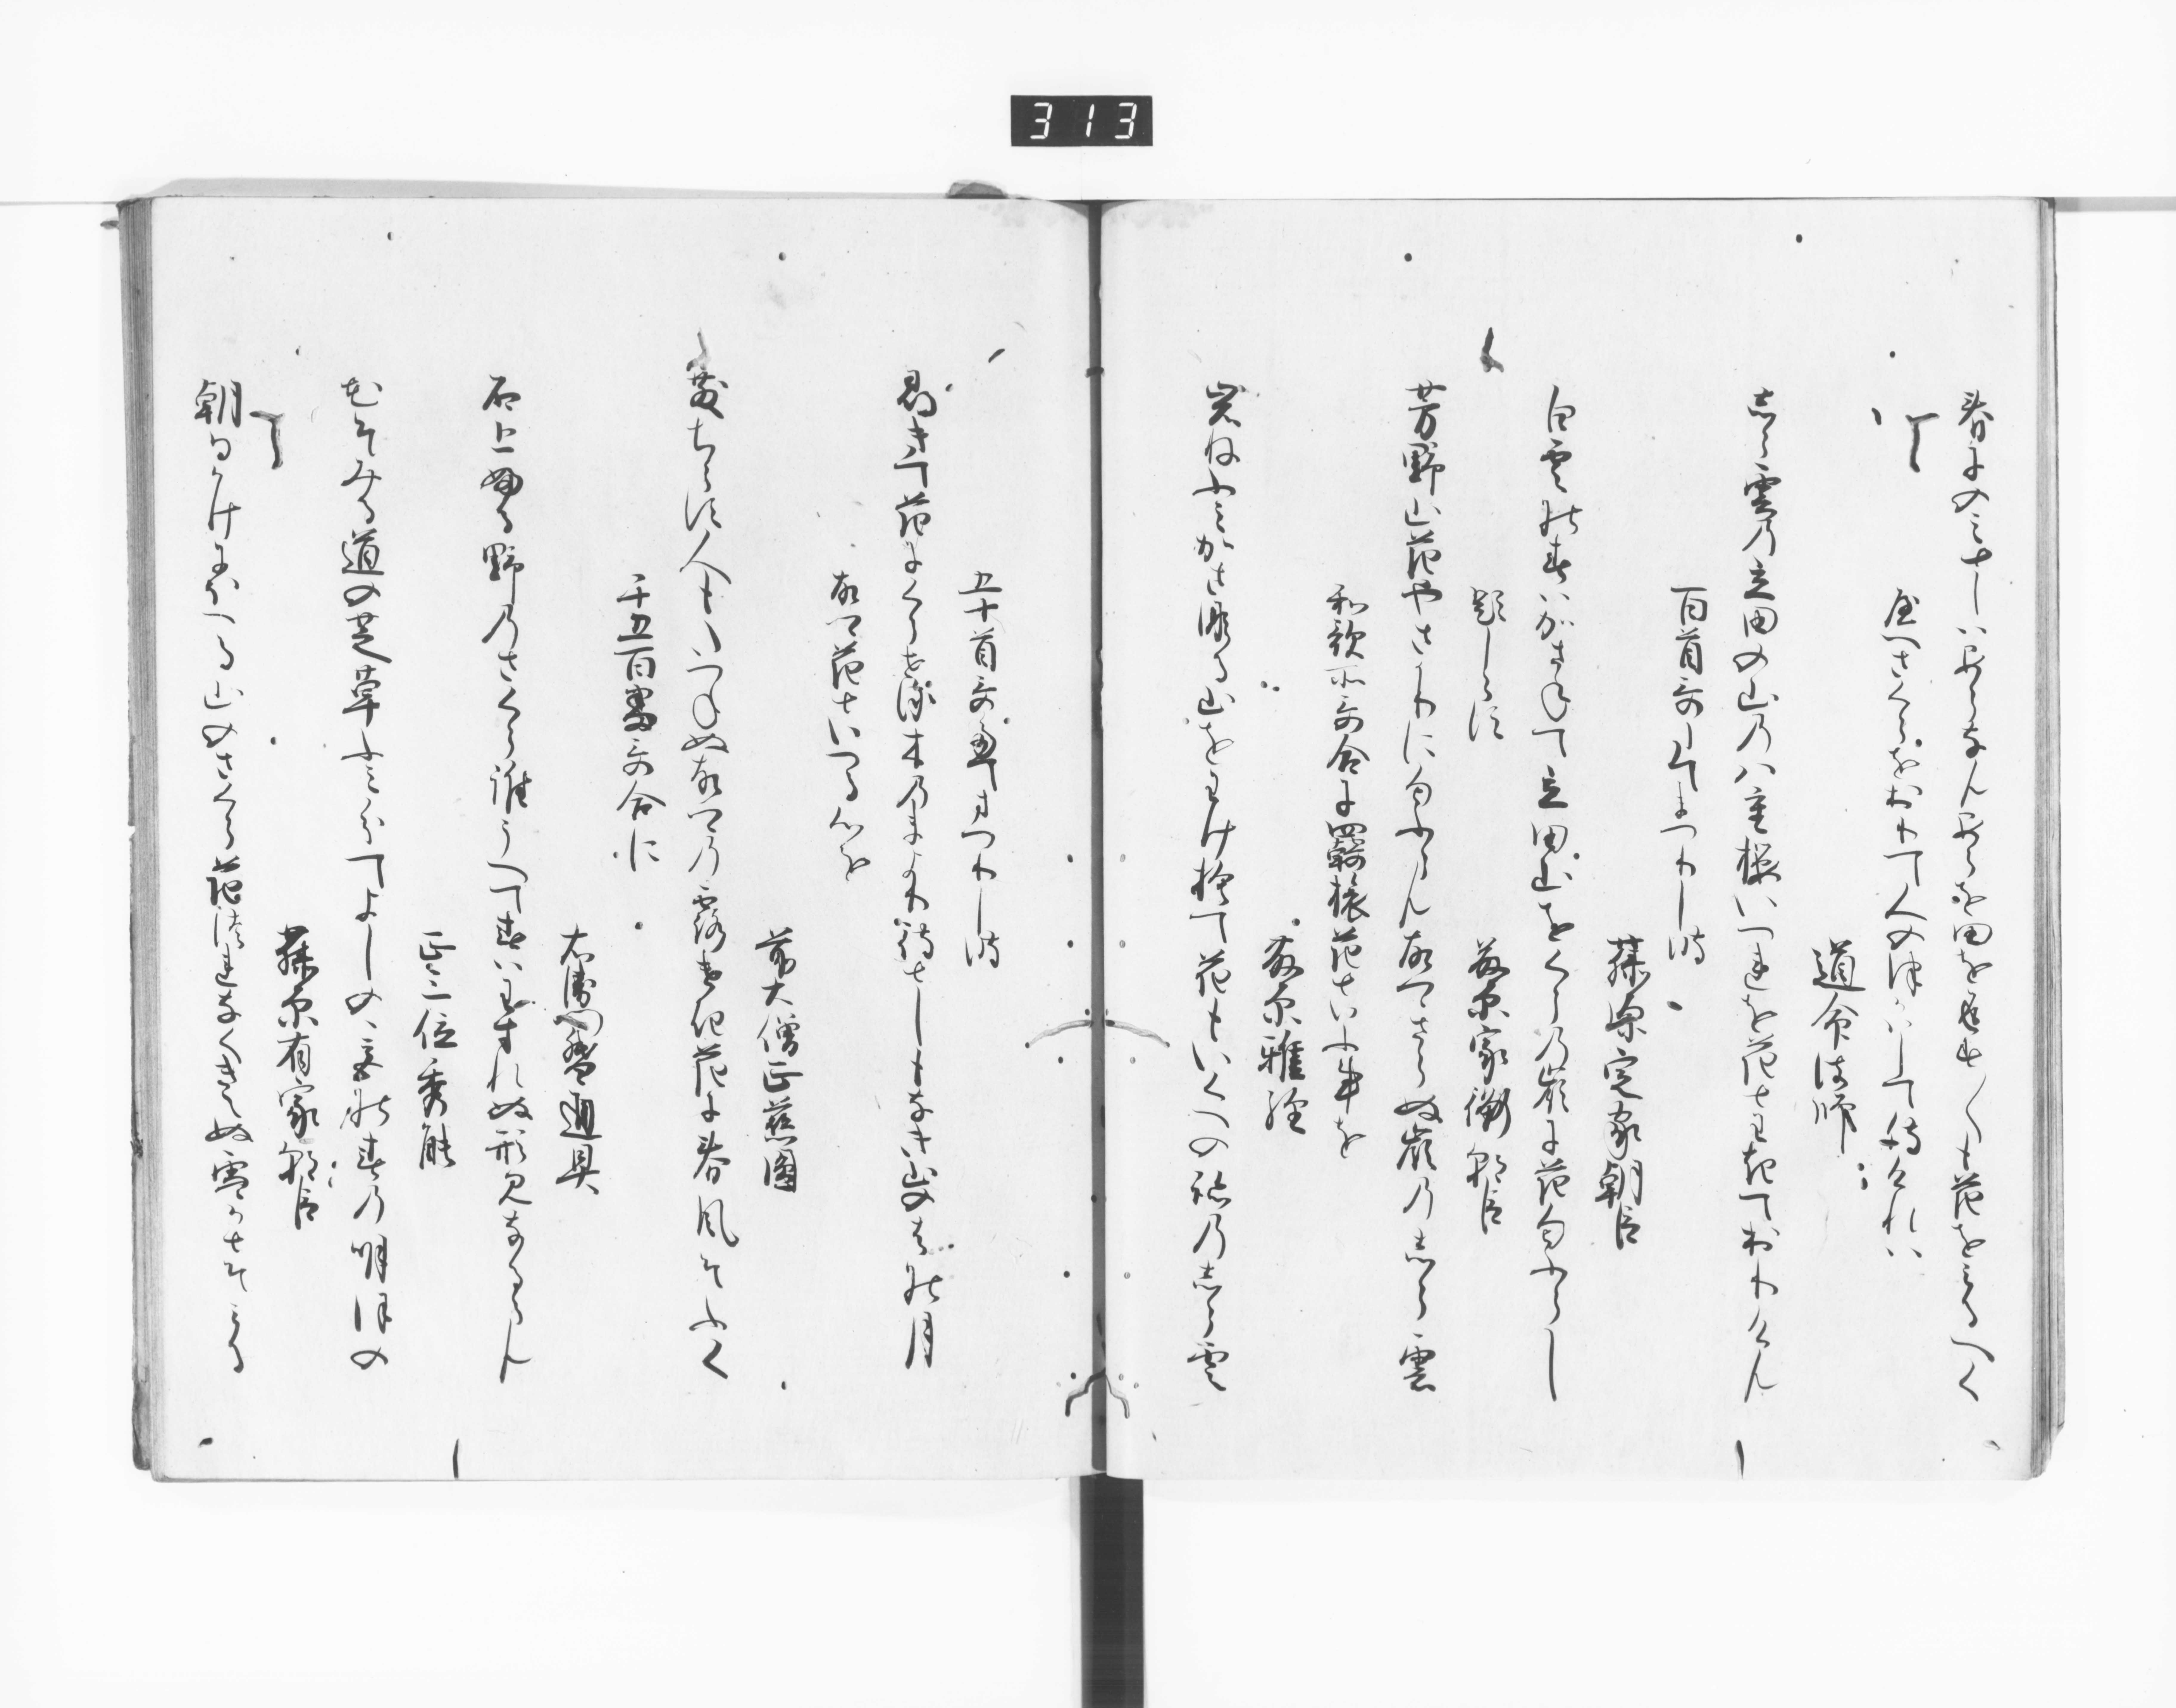 313
春にのミ年ハあらなんあら小田を返す／＼も花をミるへく
屋へさくらをおりて人のつかハして侍けれハ
道命法師
志ら雲乃立田の山乃八重桜いつれを花とわきておりけん
百首哥たてまつりし時
藤原定家朝臣
白雲の春ハかさねて立田山をくら乃嶺に花匂ふらし
題しらす
藤原家衡朝臣
芳野山花やさかりに匂ふらん故さとさらぬ嶺乃志ら雲
和歌所哥合に羇旅花といふ事を
藤原雅経
岩ねふミかさなる山をわけ捨て花もいくへの跡乃志ら雲
五十首哥奉まつりし時
尋きて花にくらせる木乃まより待としもなき山のはの月
故郷花といへる心を
前大僧正慈圓
散ちらす人もたつねぬ故郷乃露けき花に春風そふく
千五百番哥合に
右衛門督通具
石上ふる野乃さくら誰うへて春ハわすれぬ形見なるらん
正三位季能
花そみる道の芝草ふミわけてよしのゝ宮の春乃明ほの
藤原有家朝臣
朝日かけにほへる山のさくら花つれなくきえぬ雪かとそミる